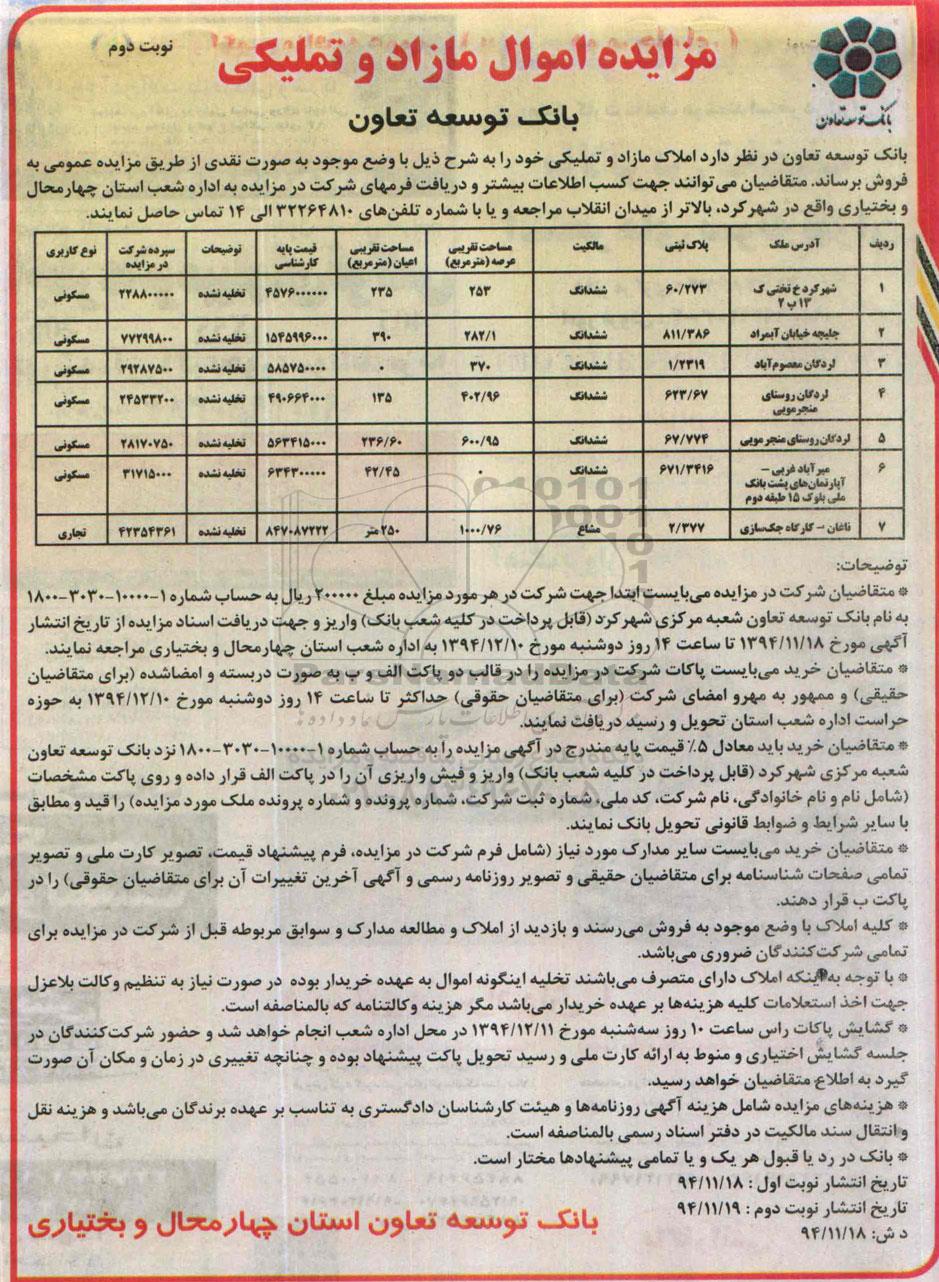 نوبت دوم
مزایده اموال مازاد و تملیکی
بانک توسعه تعاون
بانک توسعه تعاون
بانک توسعه تعاون در نظر دارد املاک مازاد و تملیکی خود را به شرح ذیل با وضع موجود به صورت نقدی از طریق مزایده عمومی به
فروش برساند. متقاضیان می‌توانند جهت کسب اطلاعات بیشتر و دریافت فرمهای شرکت در مزایده به اداره شعب استان چهارمحال
و بختیاری واقع در شهرکرد، بالاتر از میدان انقلاب مراجعه و یا با شماره تلفن‌های ۳۲۲۶۴۸۱۰ الی ۱۴ تماس حاصل نمایند.
ردیف | آدرس ملک | پلاک ثبتی | مالکیت | مساحت تقریبی عرصه (مترمربع) | مساحت تقریبی اعیان (مترمربع) | قیمت پایه کارشناسی | توضیحات | سپرده شرکت در مزایده | نوع کاربری
۱ | شهرکرد خ تختی ک ۱۳ پ ۲ | ۶۰/۲۷۳ | ششدانگ | ۲۵۳ | ۲۳۵ | ۴۵۷۶۰۰۰۰۰۰ | تخلیه نشده | ۲۲۸۸۰۰۰۰۰ | مسکونی
۲ | جلیجه خیابان آبمراد | ۸۱۱/۳۸۶ | ششدانگ | ۲۸۲/۱ | ۳۹۰ | ۱۵۴۵۹۹۶۰۰۰ | تخلیه نشده | ۷۷۲۹۹۸۰۰ | مسکونی
۳ | لردگان معصوم‌آباد | ۱/۲۳۱۹ | ششدانگ | ۳۷۰ | ۰ | ۵۸۵۷۵۰۰۰۰ | تخلیه نشده | ۲۹۲۸۷۵۰۰ | مسکونی
۴ | لردگان روستای منجرمویی | ۶۲۳/۶۷ | ششدانگ | ۴۰۲/۹۶ | ۱۳۵ | ۴۹۰۶۶۴۰۰۰ | تخلیه نشده | ۲۴۵۳۳۲۰۰ | مسکونی
۵ | لردگان روستای منجرمویی | ۶۷/۷۷۴ | ششدانگ | ۶۰۰/۹۵ | ۲۳۶/۶۰ | ۵۶۳۴۱۵۰۰۰ | تخلیه نشده | ۲۸۱۷۰۷۵۰ | مسکونی
۶ | میرآباد غربی – آپارتمان‌های پشت بانک ملی بلوک ۱۵ طبقه دوم | ۶۷۱/۳۴۱۶ | ششدانگ | ۰ | ۴۲/۴۵ | ۶۳۴۳۰۰۰۰۰ | تخلیه نشده | ۳۱۷۱۵۰۰۰ | مسکونی
۷ | ناغان – کارگاه جک‌سازی | ۲/۳۷۷ | مشاع | ۱۰۰۰/۷۶ | ۲۵۰ متر | ۸۴۷۰۸۷۲۲۲ | تخلیه نشده | ۴۲۳۵۴۳۶۱ | تجاری
توضیحات:
* متقاضیان شرکت در مزایده می‌بایست ابتدا جهت شرکت در هر مورد مزایده مبلغ ۲۰۰۰۰۰ ریال به حساب شماره ۱-۱۰۰۰۰-۳۰۳۰-۱۸۰۰
به نام بانک توسعه تعاون شعبه مرکزی شهرکرد (قابل پرداخت در کلیه شعب بانک) واریز و جهت دریافت اسناد مزایده از تاریخ انتشار
آگهی مورخ ۱۳۹۴/۱۱/۱۸ تا ساعت ۱۴ روز دوشنبه مورخ ۱۳۹۴/۱۲/۱۰ به اداره شعب استان چهارمحال و بختیاری مراجعه نمایند.
* متقاضیان خرید می‌بایست پاکات شرکت در مزایده را در قالب دو پاکت الف و پ به صورت دربسته و امضاشده (برای متقاضیان
حقیقی) و ممهور به مهرو امضای شرکت (برای متقاضیان حقوقی) حداکثر تا ساعت ۱۴ روز دوشنبه مورخ ۱۳۹۴/۱۲/۱۰ به حوزه
حراست اداره شعب استان تحویل و رسید دریافت نمایند.
* متقاضیان خرید باید معادل ۵٪ قیمت پایه مندرج در آگهی مزایده را به حساب شماره ۱-۱۰۰۰۰-۳۰۳۰-۱۸۰۰ نزد بانک توسعه تعاون
شعبه مرکزی شهرکرد (قابل پرداخت در کلیه شعب بانک) واریز و فیش واریزی آن را در پاکت الف قرار داده و روی پاکت مشخصات
(شامل نام و نام خانوادگی، نام شرکت، کد ملی، شماره ثبت شرکت، شماره پرونده و شماره پرونده ملک مورد مزایده) را قید و مطابق
با سایر شرایط و ضوابط قانونی تحویل بانک نمایند.
* متقاضیان خرید می‌بایست سایر مدارک مورد نیاز (شامل فرم شرکت در مزایده، فرم پیشنهاد قیمت، تصویر کارت ملی و تصویر
تمامی صفحات شناسنامه برای متقاضیان حقیقی و تصویر روزنامه رسمی و آگهی آخرین تغییرات آن برای متقاضیان حقوقی) را در
پاکت ب قرار دهند.
* کلیه املاک با وضع موجود به فروش می‌رسند و بازدید از املاک و مطالعه مدارک و سوابق مربوطه قبل از شرکت در مزایده برای
تمامی شرکت‌کنندگان ضروری می‌باشد.
* با توجه به اینکه املاک دارای متصرف می‌باشند تخلیه اینگونه اموال به عهده خریدار بوده در صورت نیاز به تنظیم وکالت بلاعزل
جهت اخذ استعلامات کلیه هزینه‌ها بر عهده خریدار می‌باشد مگر هزینه وکالتنامه که بالمناصفه است.
* گشایش پاکات راس ساعت ۱۰ روز سه‌شنبه مورخ ۱۳۹۴/۱۲/۱۱ در محل اداره شعب انجام خواهد شد و حضور شرکت‌کنندگان در
جلسه گشایش اختیاری و منوط به ارائه کارت ملی و رسید تحویل پاکت پیشنهاد بوده و چنانچه تغییری در زمان و مکان آن صورت
گیرد به اطلاع متقاضیان خواهد رسید.
* هزینه‌های مزایده شامل هزینه آگهی روزنامه‌ها و هیئت کارشناسان دادگستری به تناسب بر عهده برندگان می‌باشد و هزینه نقل
و انتقال سند مالکیت در دفتر اسناد رسمی بالمناصفه است.
* بانک در رد یا قبول هر یک و یا تمامی پیشنهادها مختار است.
تاریخ انتشار نوبت اول : ۹۴/۱۱/۱۸
تاریخ انتشار نوبت دوم : ۹۴/۱۱/۱۹
د ش: ۹۴/۱۱/۱۸
بانک توسعه تعاون استان چهارمحال و بختیاری